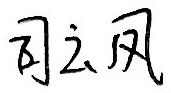 司云凤